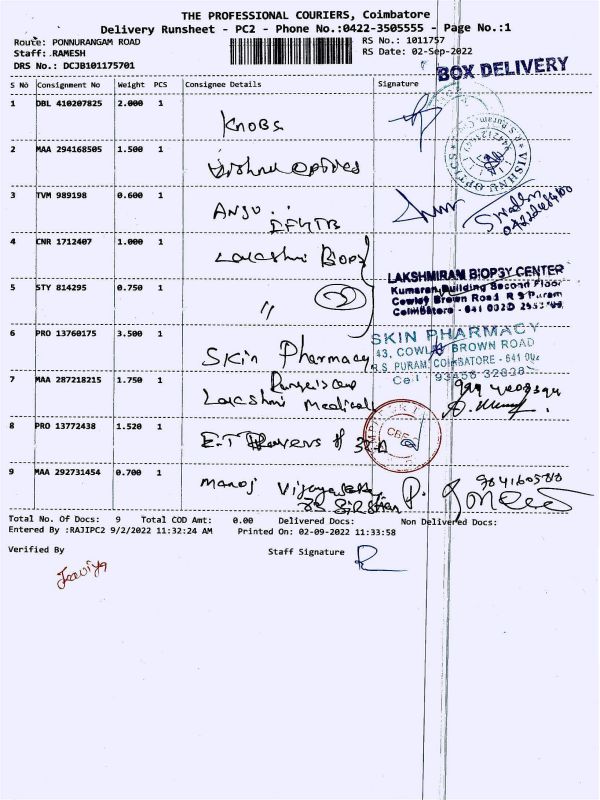 THE PROFESSIONAL COURIERS, Coimbatore
Delivery Runsheet - PC2 - Phone No.:0422-3505555 - Page No.:1
Route: PONNURANGAM ROAD
RS No.: 1011757
Staff: RAMESH
RS Date: 02-Sep-2022
DRS No.: DCJB101175701
BOX DELIVERY
S No Consignment No Weight PCS Consignee Details Signature
1 DBL 410207825 2.000 1
Knobs
2 MAA 294168505 1.500 1
Vishnu Optics
VISHNU OPTICS
3 TVM 989198 0.600 1
Anju
Swathi
4 CNR 1712407 1.000 1
Lakshmi Biopsy
LAKSHMIRAM BIOPSY CENTER
Kumaran Building Second Floor
Cowley Brown Road R S Puram
Coimbatore - 641 002
5 STY 814295 0.750 1
〃
2
6 PRO 13760175 3.500 1
Skin Pharmacy
SKIN PHARMACY
43, COWLEY BROWN ROAD
R.S. PURAM, COIMBATORE - 641 002
Cell
7 MAA 287218215 1.750 1
Lakshmi Medicals
8 PRO 13772438 1.520 1
E.T
9 MAA 292731454 0.700 1
Manoj
Total No. Of Docs: 9 Total COD Amt: 0.00 Delivered Docs: Non Delivered Docs:
Entered By :RAJIPC2 9/2/2022 11:32:24 AM Printed On: 02-09-2022 11:33:58
Verified By
Staff Signature